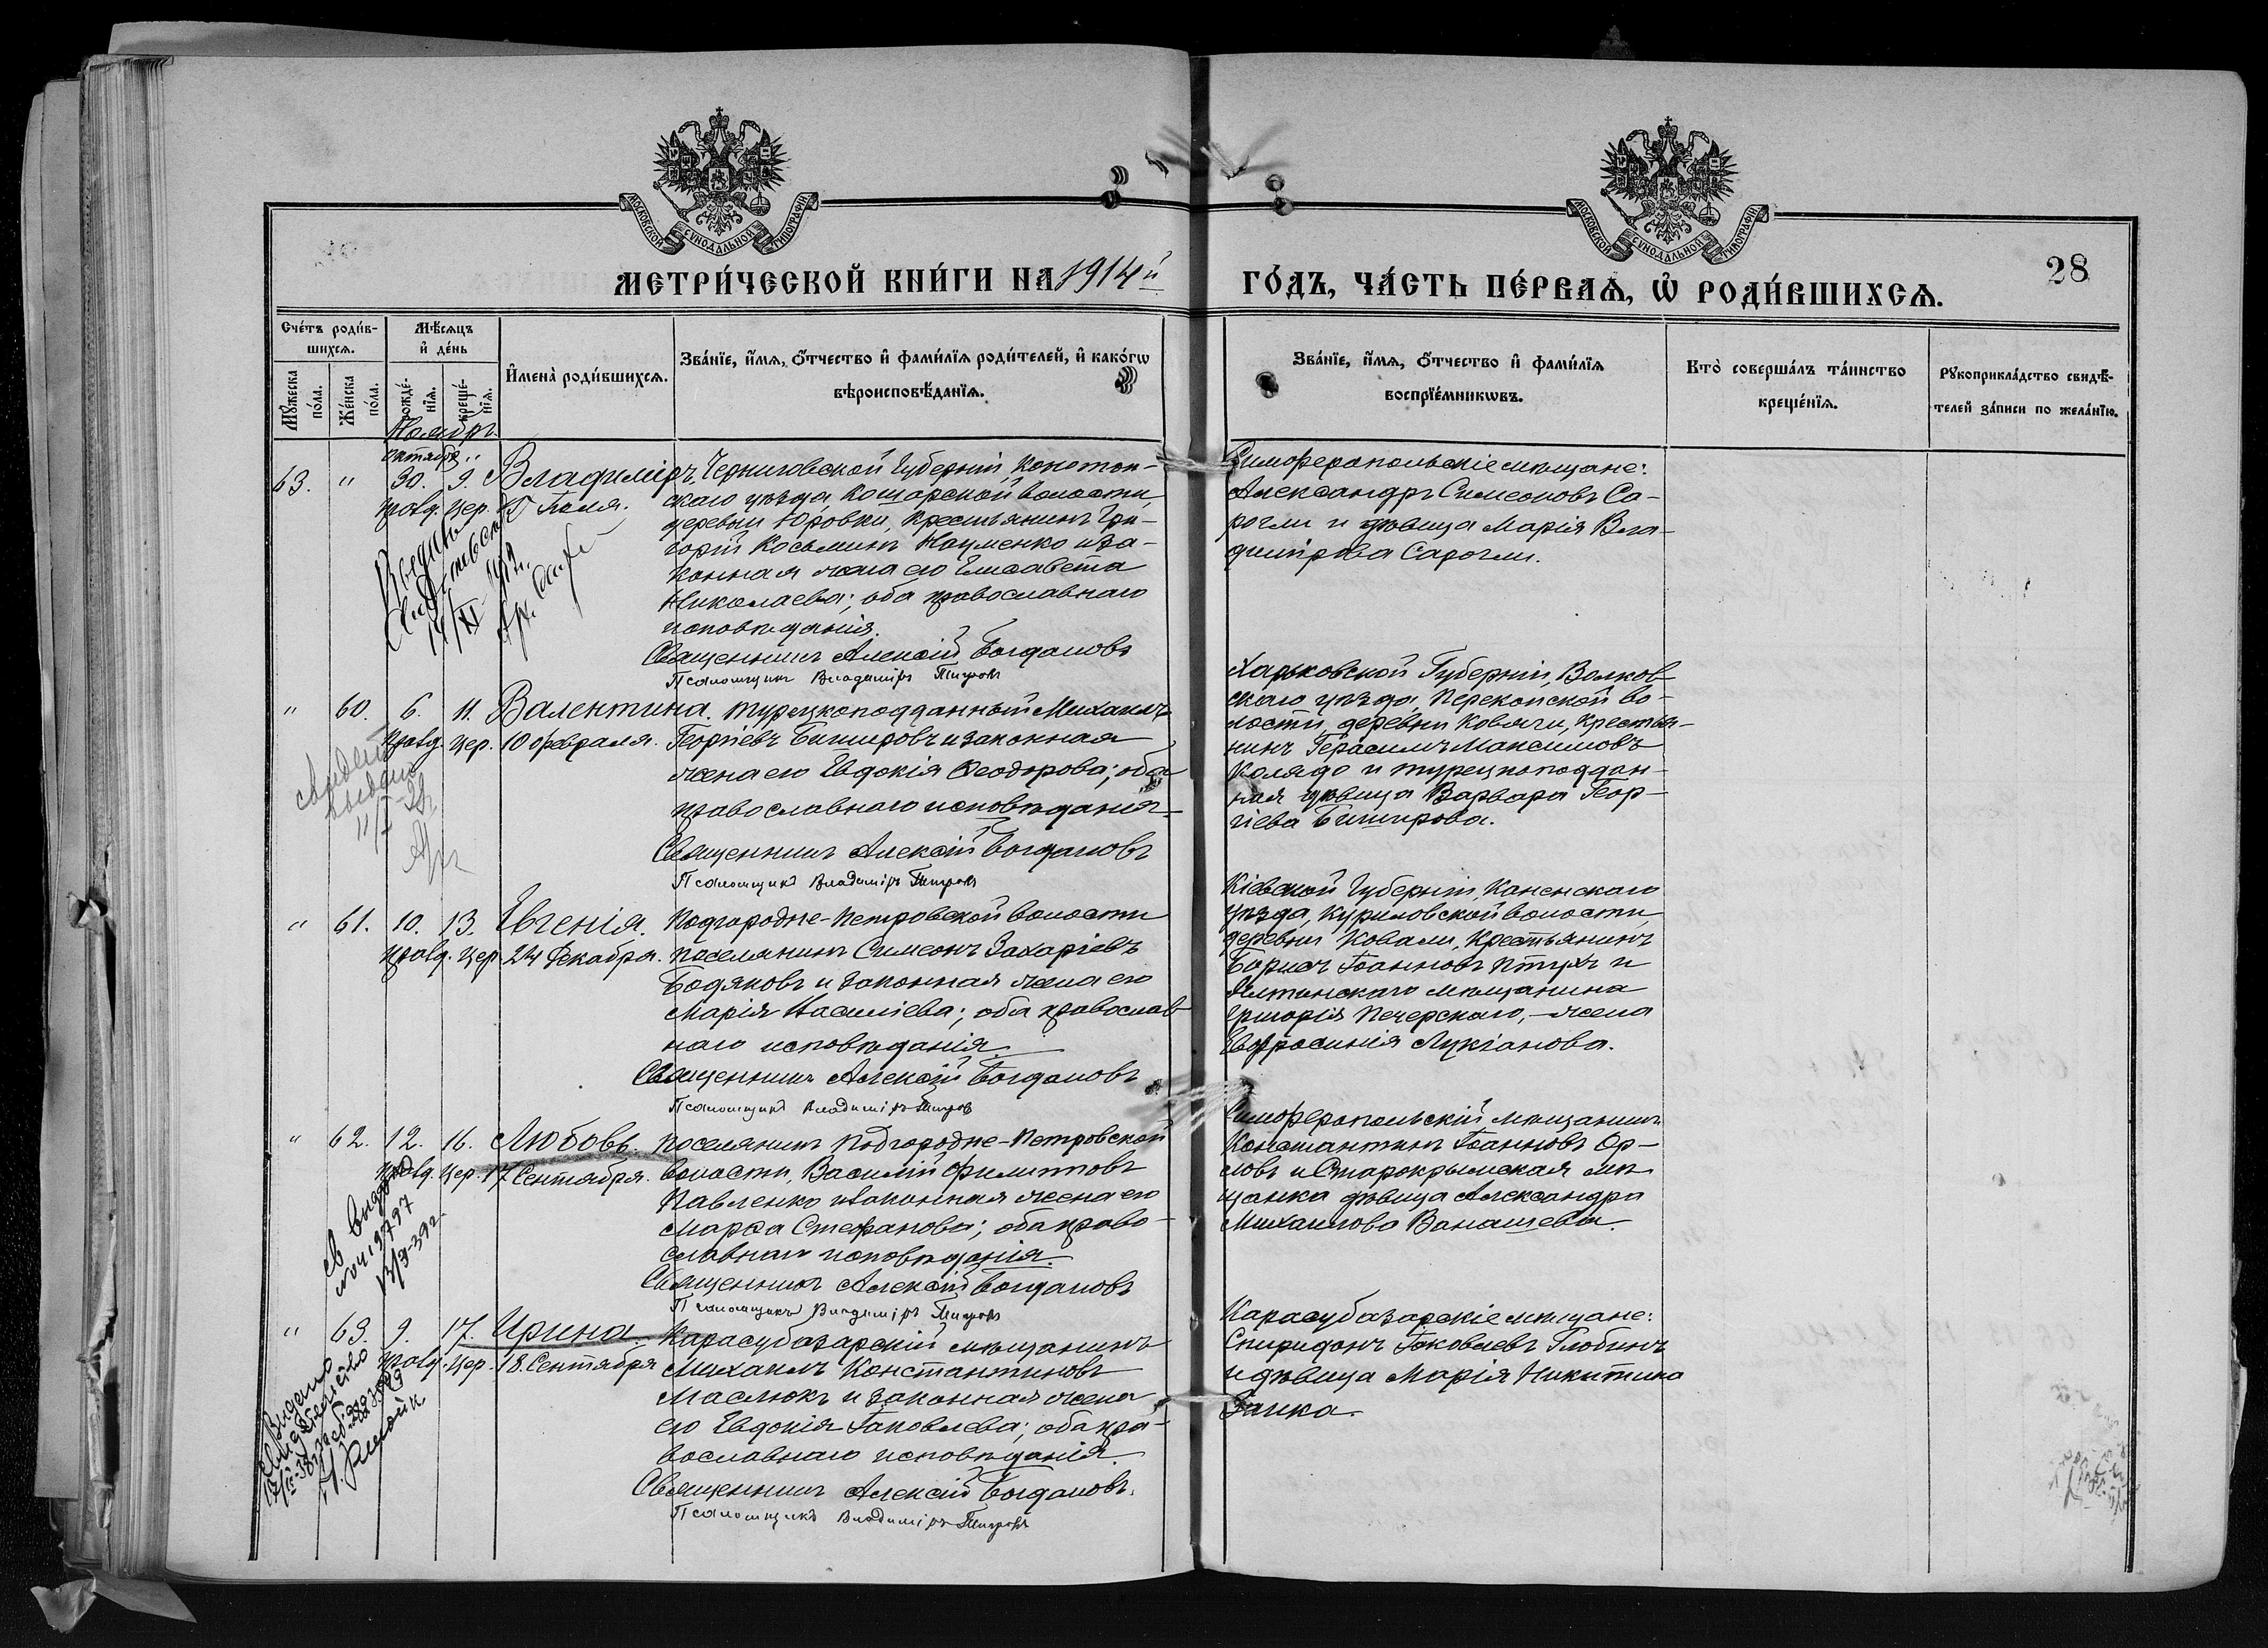 МОСКОВСКОЙ СУНОДАЛЬНОЙ ТИПОГРАФІИ
МОСКОВСКОЙ СУНОДАЛЬНОЙ ТИПОГРАФІИ
МЕТРИ́ЧЕСКОЙ КНИ́ГИ НА 1914й
ГО́ДЪ, ЧА́СТЬ ПЕ́РВАѦ, Ѽ РОДИ́ВШИХСѦ.
28
Сче́тъ роди́в-
шихсѧ.
Мѣ́сѧцъ
и҆ де́нь
Мꙋ́жеска по́ла.
Же́нска по́ла.
рожде́-
нїѧ.
креще́-
нїѧ.
И҆мена̀ роди́вшихсѧ.
Зва́нїе, и҆́мѧ, ѻ҆́тчество и҆ фами́лїѧ роди́телей, и҆ како́гѡ
вѣроисповѣ́данїѧ.
Зва́нїе, и҆́мѧ, ѻ҆́тчество и҆ фами́лїѧ
воспрїе́мникѡвъ.
Кто̀ соверша́лъ та́инство
креще́нїѧ.
Рꙋкоприкла́дство свидѣ́-
телей за́писи по жела́нїю.
Ноябрь
октября "
63. " 30. 9. Владиміръ
правд. цер. 15 Іюля.
Черниговской Губерніи, Конотоп-
скаго уѣзда, волости,
деревни Юровки, Крестьянинъ Гри-
горій Косьминъ Науменко и за-
конная жена его Елисавета
Николаева; оба православнаго
исповѣданія.
Священникъ Алексій Богдановъ
Псаломщикъ Владиміръ
Симферопольскіе мѣщане:
Александръ Симеоновъ Са-
рогли и дѣвица Марія Вла-
димірова Сарогли.
Выдано
" 60. 6. 11. Валентина.
правд. цер. 10 февраля.
Турецкоподданный Михаилъ
Георгіевъ и законная
жена его Евдокія Ѳеодорова; оба
православнаго исповѣданія.
Священникъ Алексій Богдановъ
Псаломщикъ Владиміръ
Харьковской Губерніи, Волков-
скаго уѣзда, Перекопской во-
лости, деревни Ковяги, Крестья-
нинъ Герасимъ Максимовъ
Коляда и турецкоподдан-
ная дѣвица Варвара Геор-
гіева
" 61. 10. 13. Евгенія.
правд. цер. 24 Декабря.
Подгородне-Петровской волости
поселянинъ Симеонъ Захаріевъ
Бодяковъ и законная жена его
Марія Василіева; оба православ-
наго исповѣданія.
Священникъ Алексій Богдановъ
Псаломщикъ Владиміръ
Кіевской Губерніи, Каневскаго
уѣзда, Куриловской волости,
деревни Ковали, Крестьянинъ
Борисъ Іоанновъ Птухъ и
Ялтинскаго мѣщанина
Григорія Печерскаго, — жена
Евфросинія Лукіанова.
" 62. 12. 16. Любовь.
правд. цер. 17 Сентября.
Поселянинъ Подгородне-Петровской
волости, Василій Филипповъ
Павленко и законная жена его
Марѳа Стефанова; оба право-
славнаго исповѣданія.
Священникъ Алексій Богдановъ
Псаломщикъ Владиміръ
Симферопольскій мѣщанинъ
Константинъ Іоанновъ Ор-
ловъ и Старокрымская мѣ-
щанка дѣвица Александра
Михаилова
" 63. 9. 17. Ирина.
правд. цер. 18. Сентября
Карасубазарскій мѣщанинъ
Михаилъ Константиновъ
Маслюкъ и законная жена
его Евдокія Іаковлева; оба пра-
вославнаго исповѣданія.
Священникъ Алексій Богдановъ.
Псаломщикъ Владиміръ
Карасубазарскіе мѣщане:
Спиридонъ Іаковлевъ Глобинъ
и дѣвица Марія Никитина
Заика.
Выдано
свидѣтельство